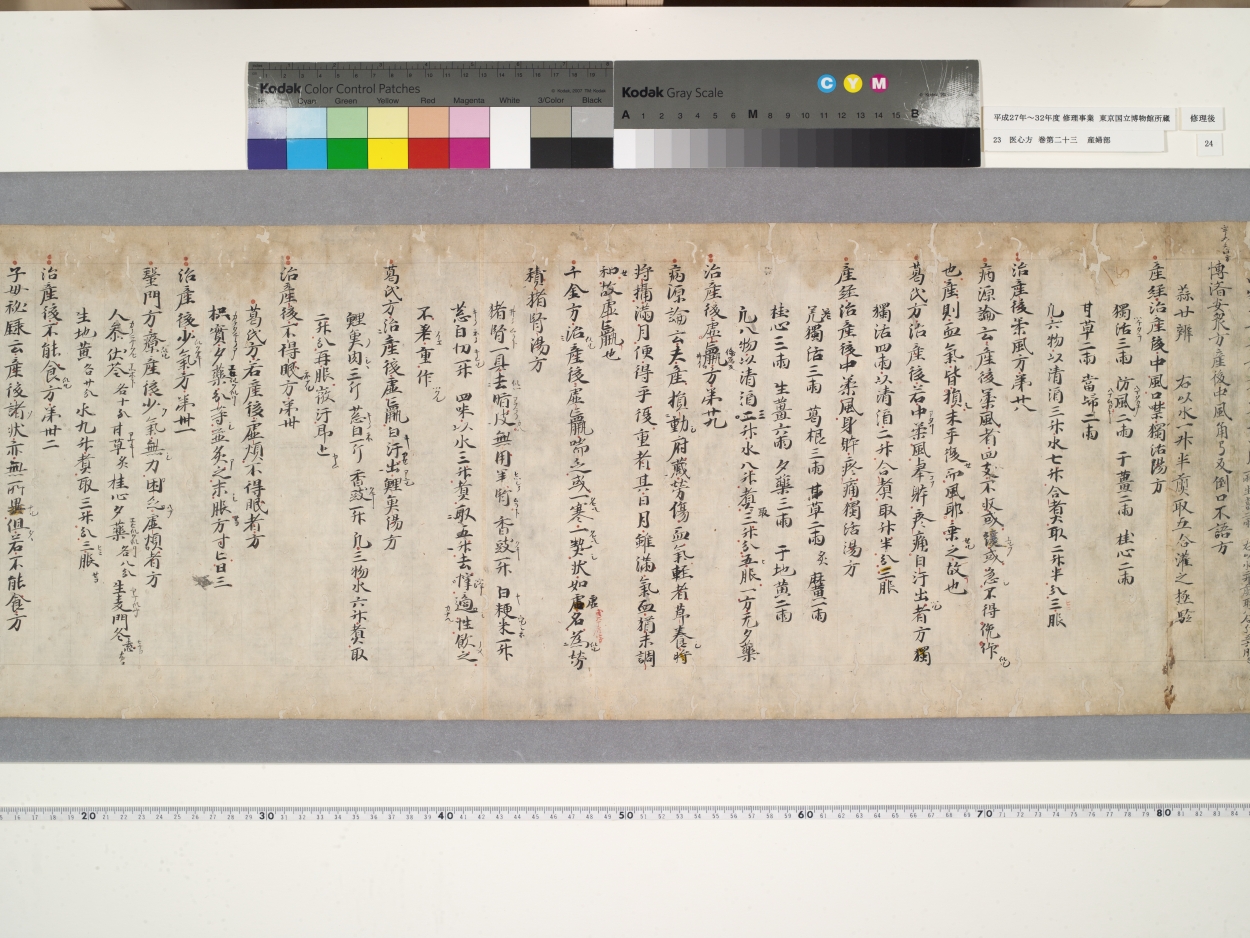 Kodak Color Control Patches
Cyan Green Yellow Red Magenta White 3/Color Black
Kodak Gray Scale
C Y M
A 1 2 3 4 5 6 M 8 9 10 11 12 13 14 15 B
平成27年～32年度 修理事業 東京国立博物館所蔵
修理後
23 医心方 巻第二十三 産婦部
24
博済安衆方産後中風角弓反倒口不語方
蒜廿辨 右以水一升半煎取五合灌之極驗
産經治産後中風口噤獨活湯方
獨活三兩 防風二兩 干薑二兩 桂心二兩
甘草二兩 當歸二兩
凡六物以清酒三升水七升合煮取二升半分三服
治産後柔風方第廿八
病源論云産後柔風者四支不收或緩或急不得俛仰
也産則血氣皆損未平復而風耶乗之故也
葛氏方治産後若中柔風擧軆疼痛自汗出者方獨
獨活四兩以清酒二升合煮取升半分二服
産經治産後中柔風身軆疼痛獨活湯方
羌獨活三兩 葛根三兩 甘草二兩炙 麻黄一兩
桂心三兩 生薑六兩 夕藥三兩 干地黄二兩
凡八物以清酒二升水八升煮取三升分五服一方无夕藥
治産後虚羸方第廿九
病源論云夫産損動府藏勞傷血氣輕者節養將
持攝滿月便得平復重者其日月雖滿氣血猶未調
和故虚羸也
千金方治産後虚羸喘乏或寒一熱状如虐名蓐勞
猪腎湯方
猪腎一具去脂皮無用羊腎 香豉一升 白粳米一升
葱白切一升 四味以水三斗煮取五升去滓適性飲之
不差重作
葛氏方治産後虚羸白汗出鯉魚湯方
鯉魚肉三斤 葱白一斤 香豉一升 凡三物水六升煮取
二升分再服微汗即止
治産後不得眠方第卅
葛氏方若産後虚煩不得眠者方
枳實夕藥分等並炙之末服方寸匕日三
治産後少氣方第卅一
醫門方療産後少氣無力困乏虚煩者方
人參伏苓各十分甘草炙桂心夕藥各八分生麦門冬
生地黄各廿分水九升煮取三升分三服
治産後不能食方第卅二
子母秘録云産後諸状亦無所異但若不能食方
20 30 40 50 60 70 80